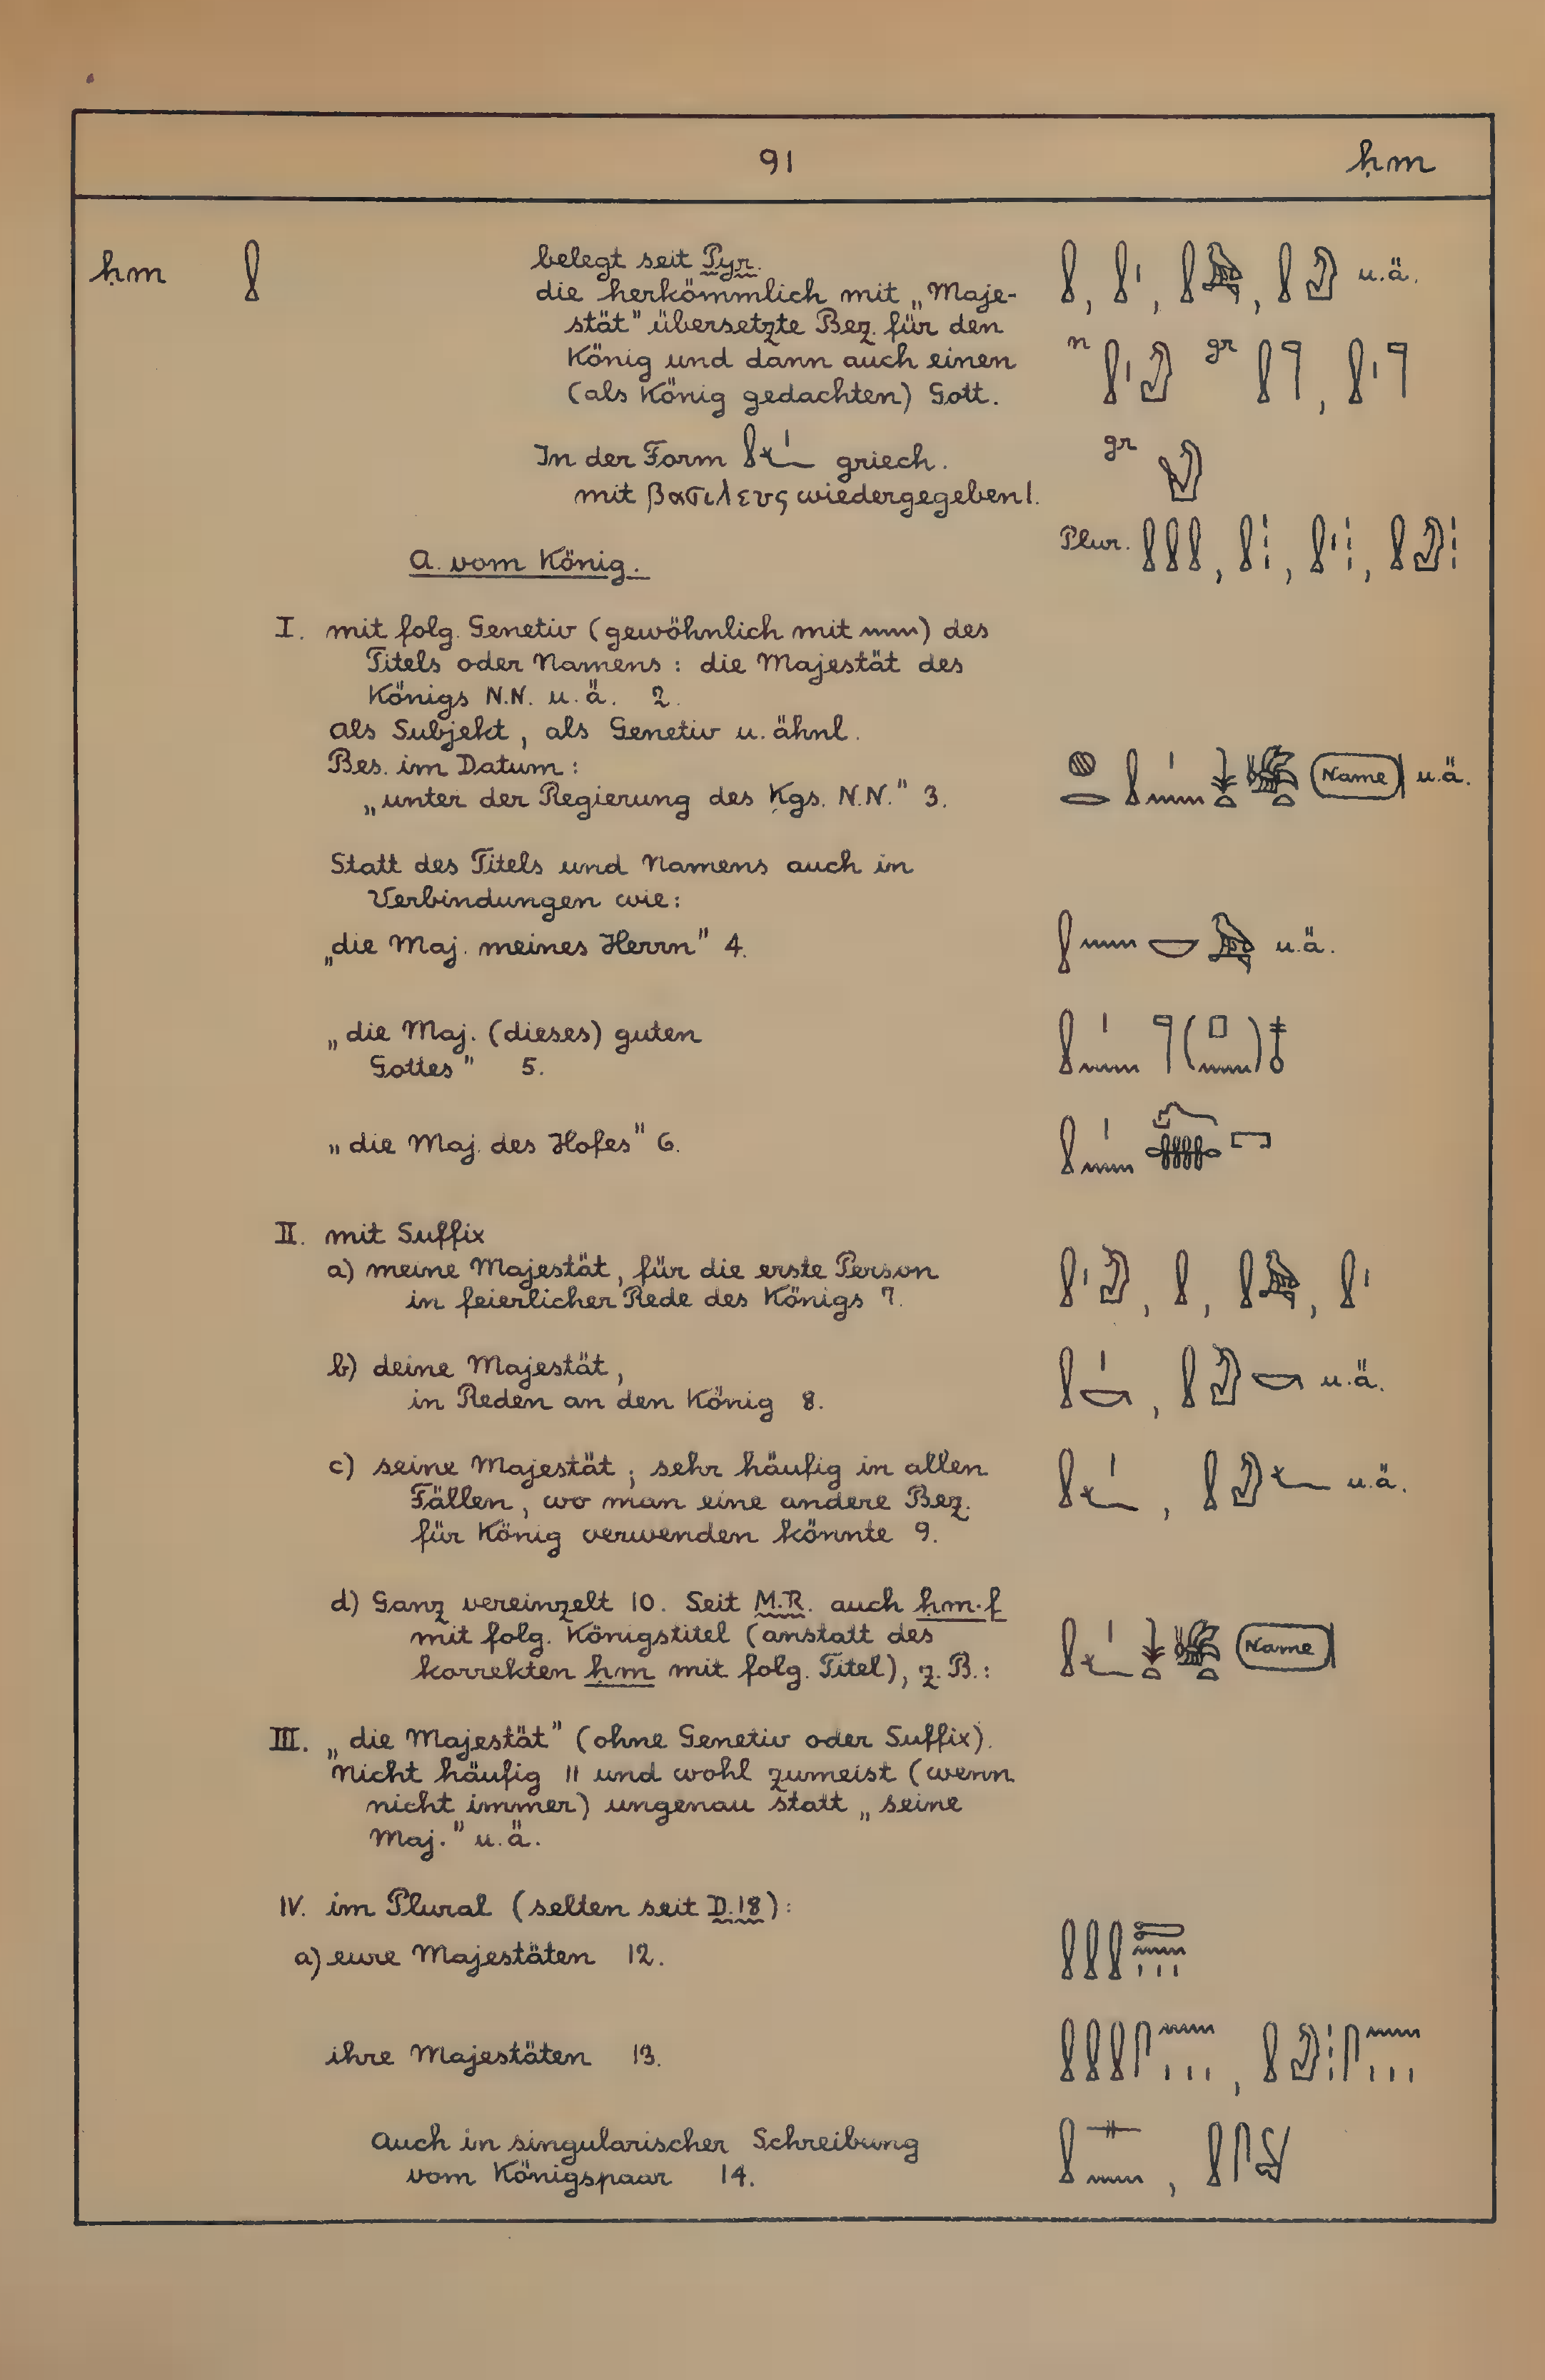 91
ḥm
ḥm
belegt seit Pyr.
die herkömmlich mit „Maje-
stät" übersetzte Bez. für den
König und dann auch einen
(als König gedachten) Gott.
u.ä.
n gr
In der Form griech.
mit βασιλευς wiedergegeben 1.
gr
Plur.
A. vom König.
I. mit folg. Genetiv (gewöhnlich mit 𓈖) des
Titels oder Namens : die Majestät des
Königs N.N. u.ä. 2.
als Subjekt, als Genetiv u. ähnl.
Bes. im Datum :
„unter der Regierung des Kgs. N.N." 3.
Name u.ä.
Statt des Titels und Namens auch in
Verbindungen wie:
„die Maj. meines Herrn" 4.
u.ä.
„die Maj. (dieses) guten
Gottes" 5.
„die Maj. des Hofes" 6.
II. mit Suffix
a) meine Majestät, für die erste Person
in feierlicher Rede des Königs 7.
b) deine Majestät,
in Reden an den König 8.
u.ä.
c) seine Majestät; sehr häufig in allen
Fällen, wo man eine andere Bez.
für König verwenden könnte 9.
u.ä.
d) Ganz vereinzelt 10. Seit M.R. auch ḥm·f
mit folg. Königstitel (anstatt des
korrekten ḥm mit folg. Titel), z.B.:
Name
III. „die Majestät" (ohne Genetiv oder Suffix).
Nicht häufig 11 und wohl zumeist (wenn
nicht immer) ungenau statt „seine
Maj." u.ä.
IV. im Plural (selten seit D.18):
a) eure Majestäten 12.
ihre Majestäten 13.
Auch in singularischer Schreibung
vom Königspaar 14.